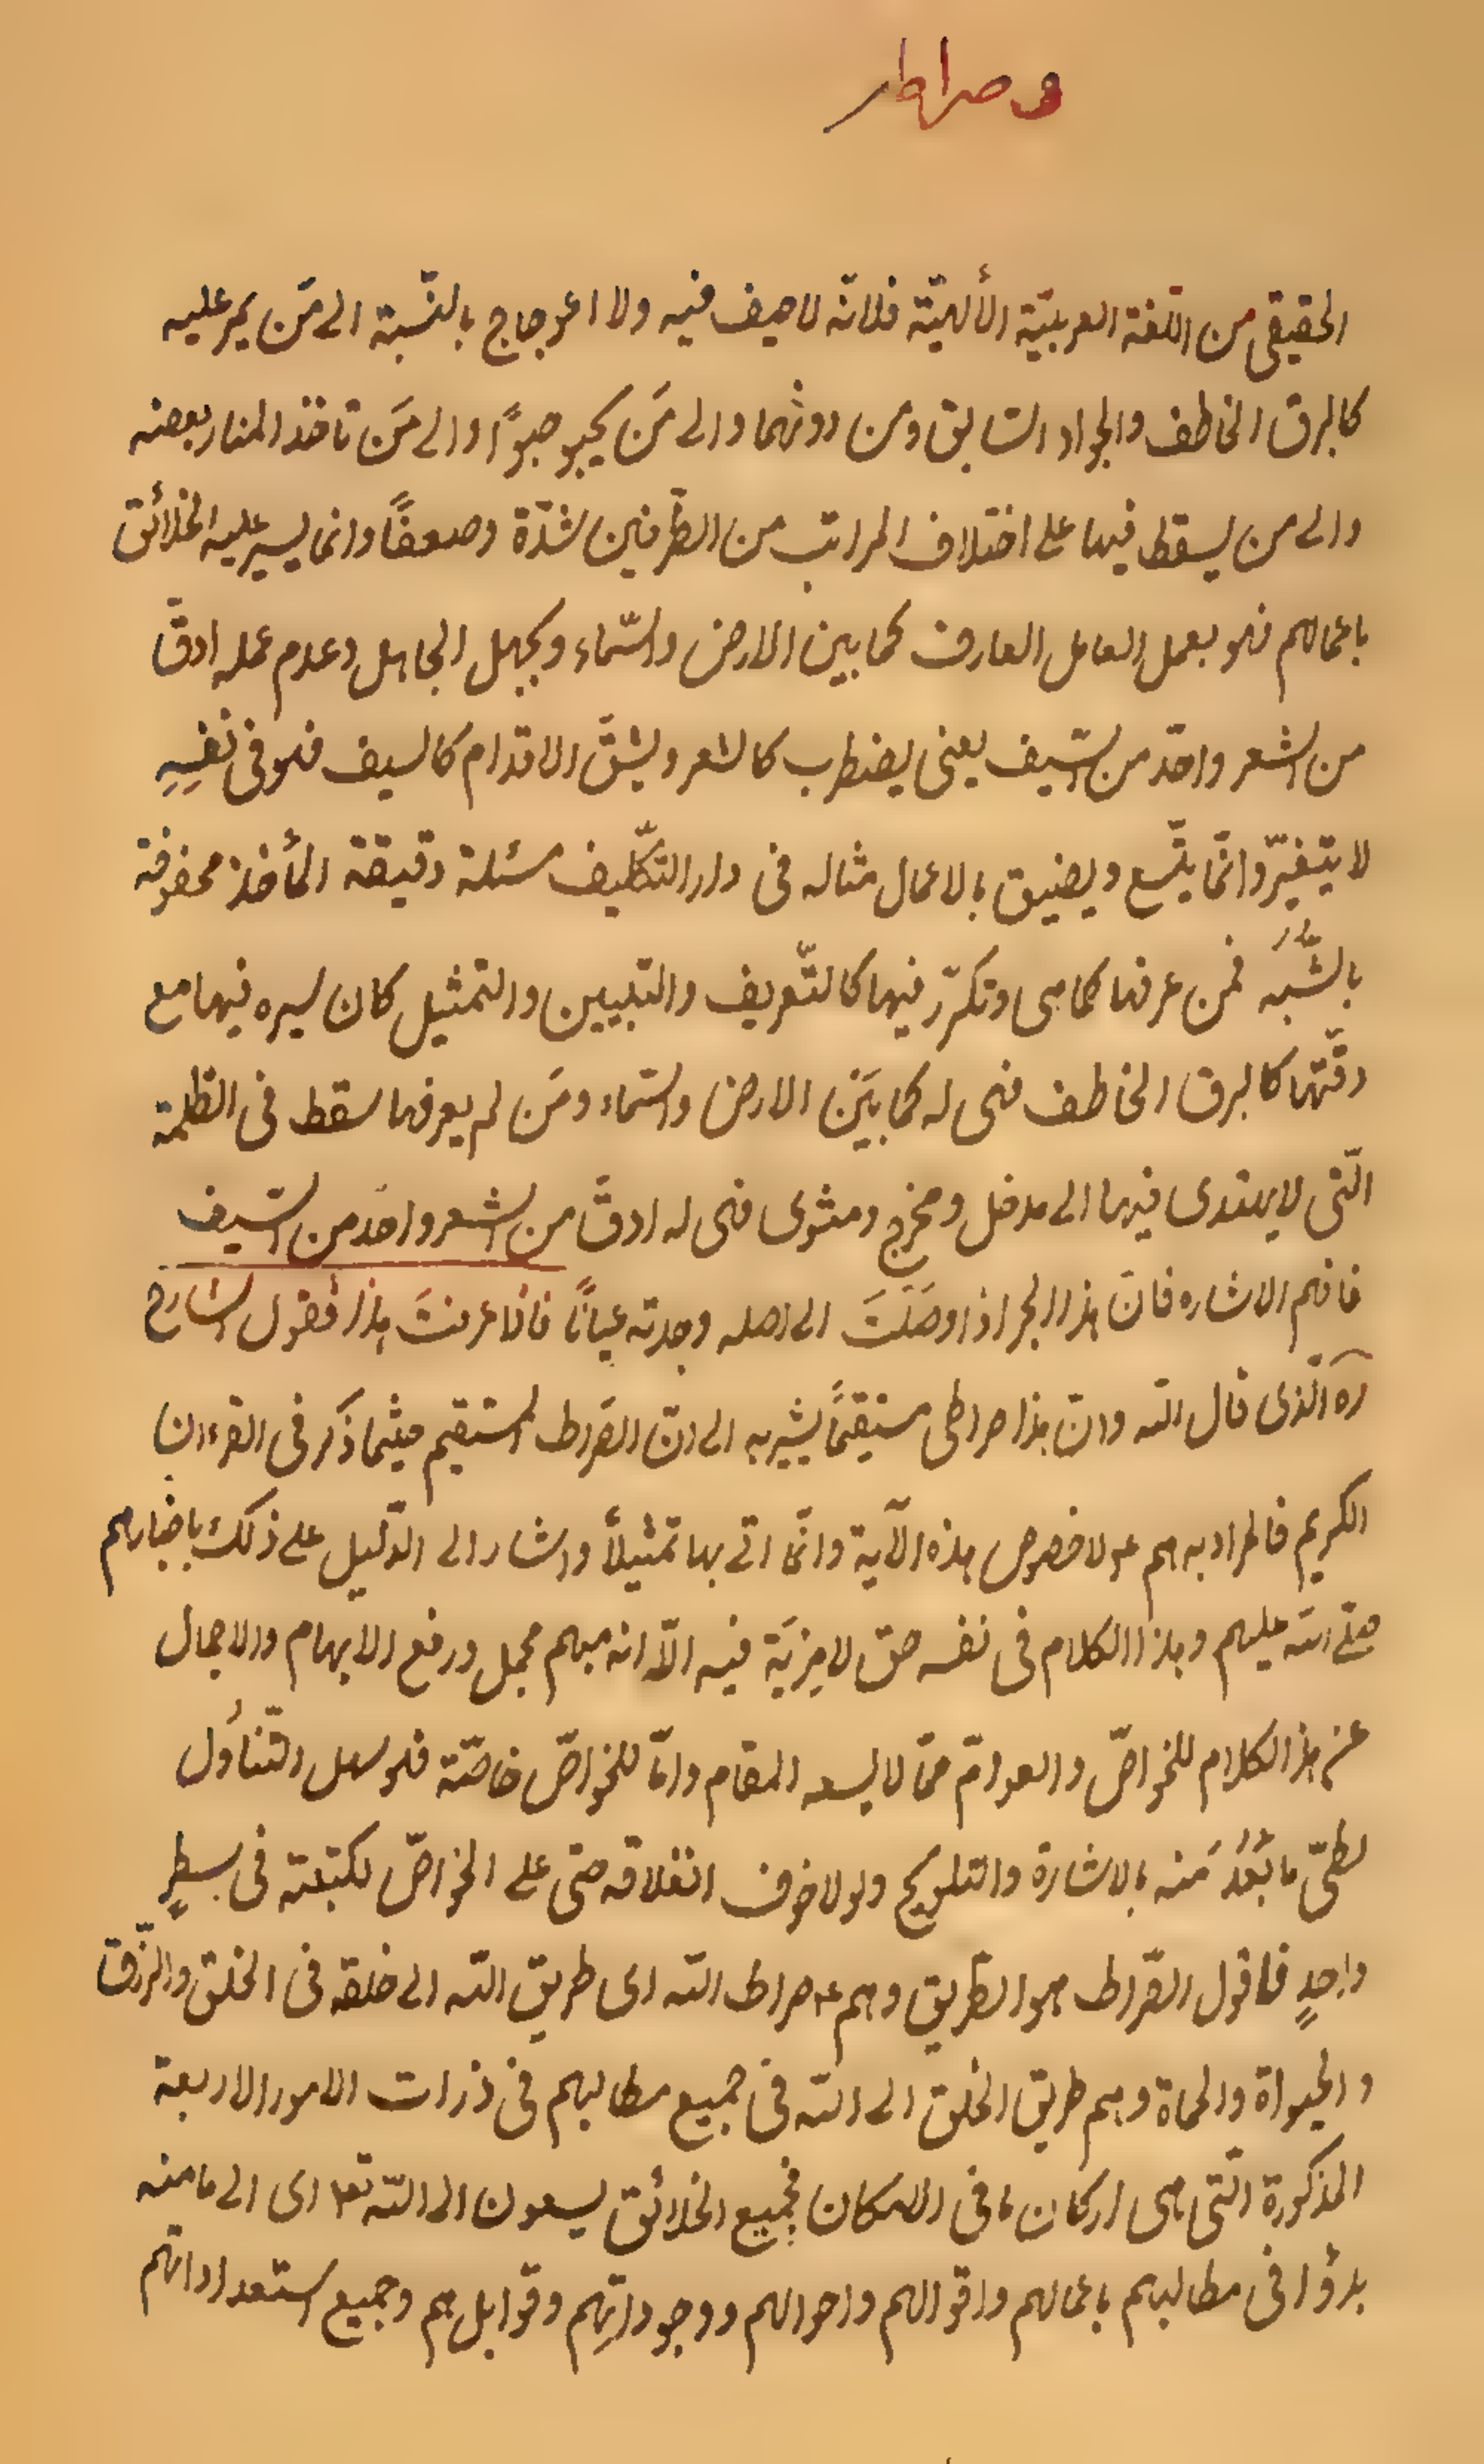 وصراطه
الحقيقى من اللّغة العربيّة الألهيّة فلانّه لاحيف فيه ولا اعوجاج بالنّسبة الى مَن يمر عليه
كالبرق الخاطف والجواد السّابق ومن دونهما والى مَن يحبو حبوًا والى مَن تاخذ النار بعضه
والى من يسقط فيها على اختلاف المراتب من الطّرفين شدّة وضعفًا وانما يسير عليه الخلائق
باعمالهم فهو بعمل العامل العارف كما بين الارض والسّماء وبجهل الجاهل وعدم عمله ادقّ
من الشعر واحدّ من السّيف يعنى يضطرب كالشعر ويشقّ الاقدام كالسيف فهو فى نفسِهِ
لا يتغيّر وانّما يتّسع ويضيق بالاعمال مثاله فى دار التّكليف مسئلة دقيقة المأخذ محفوفة
بالشُّبَه فمن عرفها كما هى وتكرّر فيها كالتّعريف والتبيين والتمثيل كان سيره فيها مع
دقّتها كالبرق الخاطف فهى له كما بَيَن الارض والسّماء ومَن لم يعرفها سقط فى الظلمة
الّتى لا يهتدى فيها الى مدخل ومخرج ومثوى فهى له ادقّ من الشعر واحدّ من السّيف
فافهم الاشاره فانّ هذا الحرا اذا وصَلَتَ الى اصله وجدته عيانًا فاذا عرفتَ هذا فقول الشارح
ره الّذى قال اللّه وانّ هذا صراطى مستقيمًا يشير به الى انّ الصّراط المستقيم حيثما ذكر فى القرءان
الكريم فالمراد به هم ع ولا خصوص هذه الآية وانّما اتى بها تمثيلاً واشار الى الدّليل على ذلك باخبارهم
صلّى اللّه عليهم وهذا الكلام فى نفسه حقّ لا مِريَة فيه الّا انه مبهم مجمل ورفع الابهام والاجمال
عن هذا الكلام للخواصّ والعوامّ ممّا لا يسعه المقام وامّا للخواصّ خاصّة فهو سهل التّناوُل
لطىّ ما بَعُدَ مَنه بالاشارة والتلويح ولولا خوف انغلاقه حتى على الخواصّ لكتبته فى سطرٍ
واحِدٍ فاقول الصّراط هو الطّريق وهم ع صراط اللّه اى طريق اللّه الى خلقه فى الخلق والرّزق
والحيواة والمماة وهم طريق الخلق الى اللّه فى جميع مطالبهم فى ذرات الامور الاربعة
المذكورة الّتى هى اركان ما فى الامكان فجميع الخلائق يسعون الى اللّه تع اى الى ما منه
بدؤا فى مطالبهم باعمالهم واقوالهم واحوالهم ووجوداتِهم وقوابل هم وجميع استعداداتهم